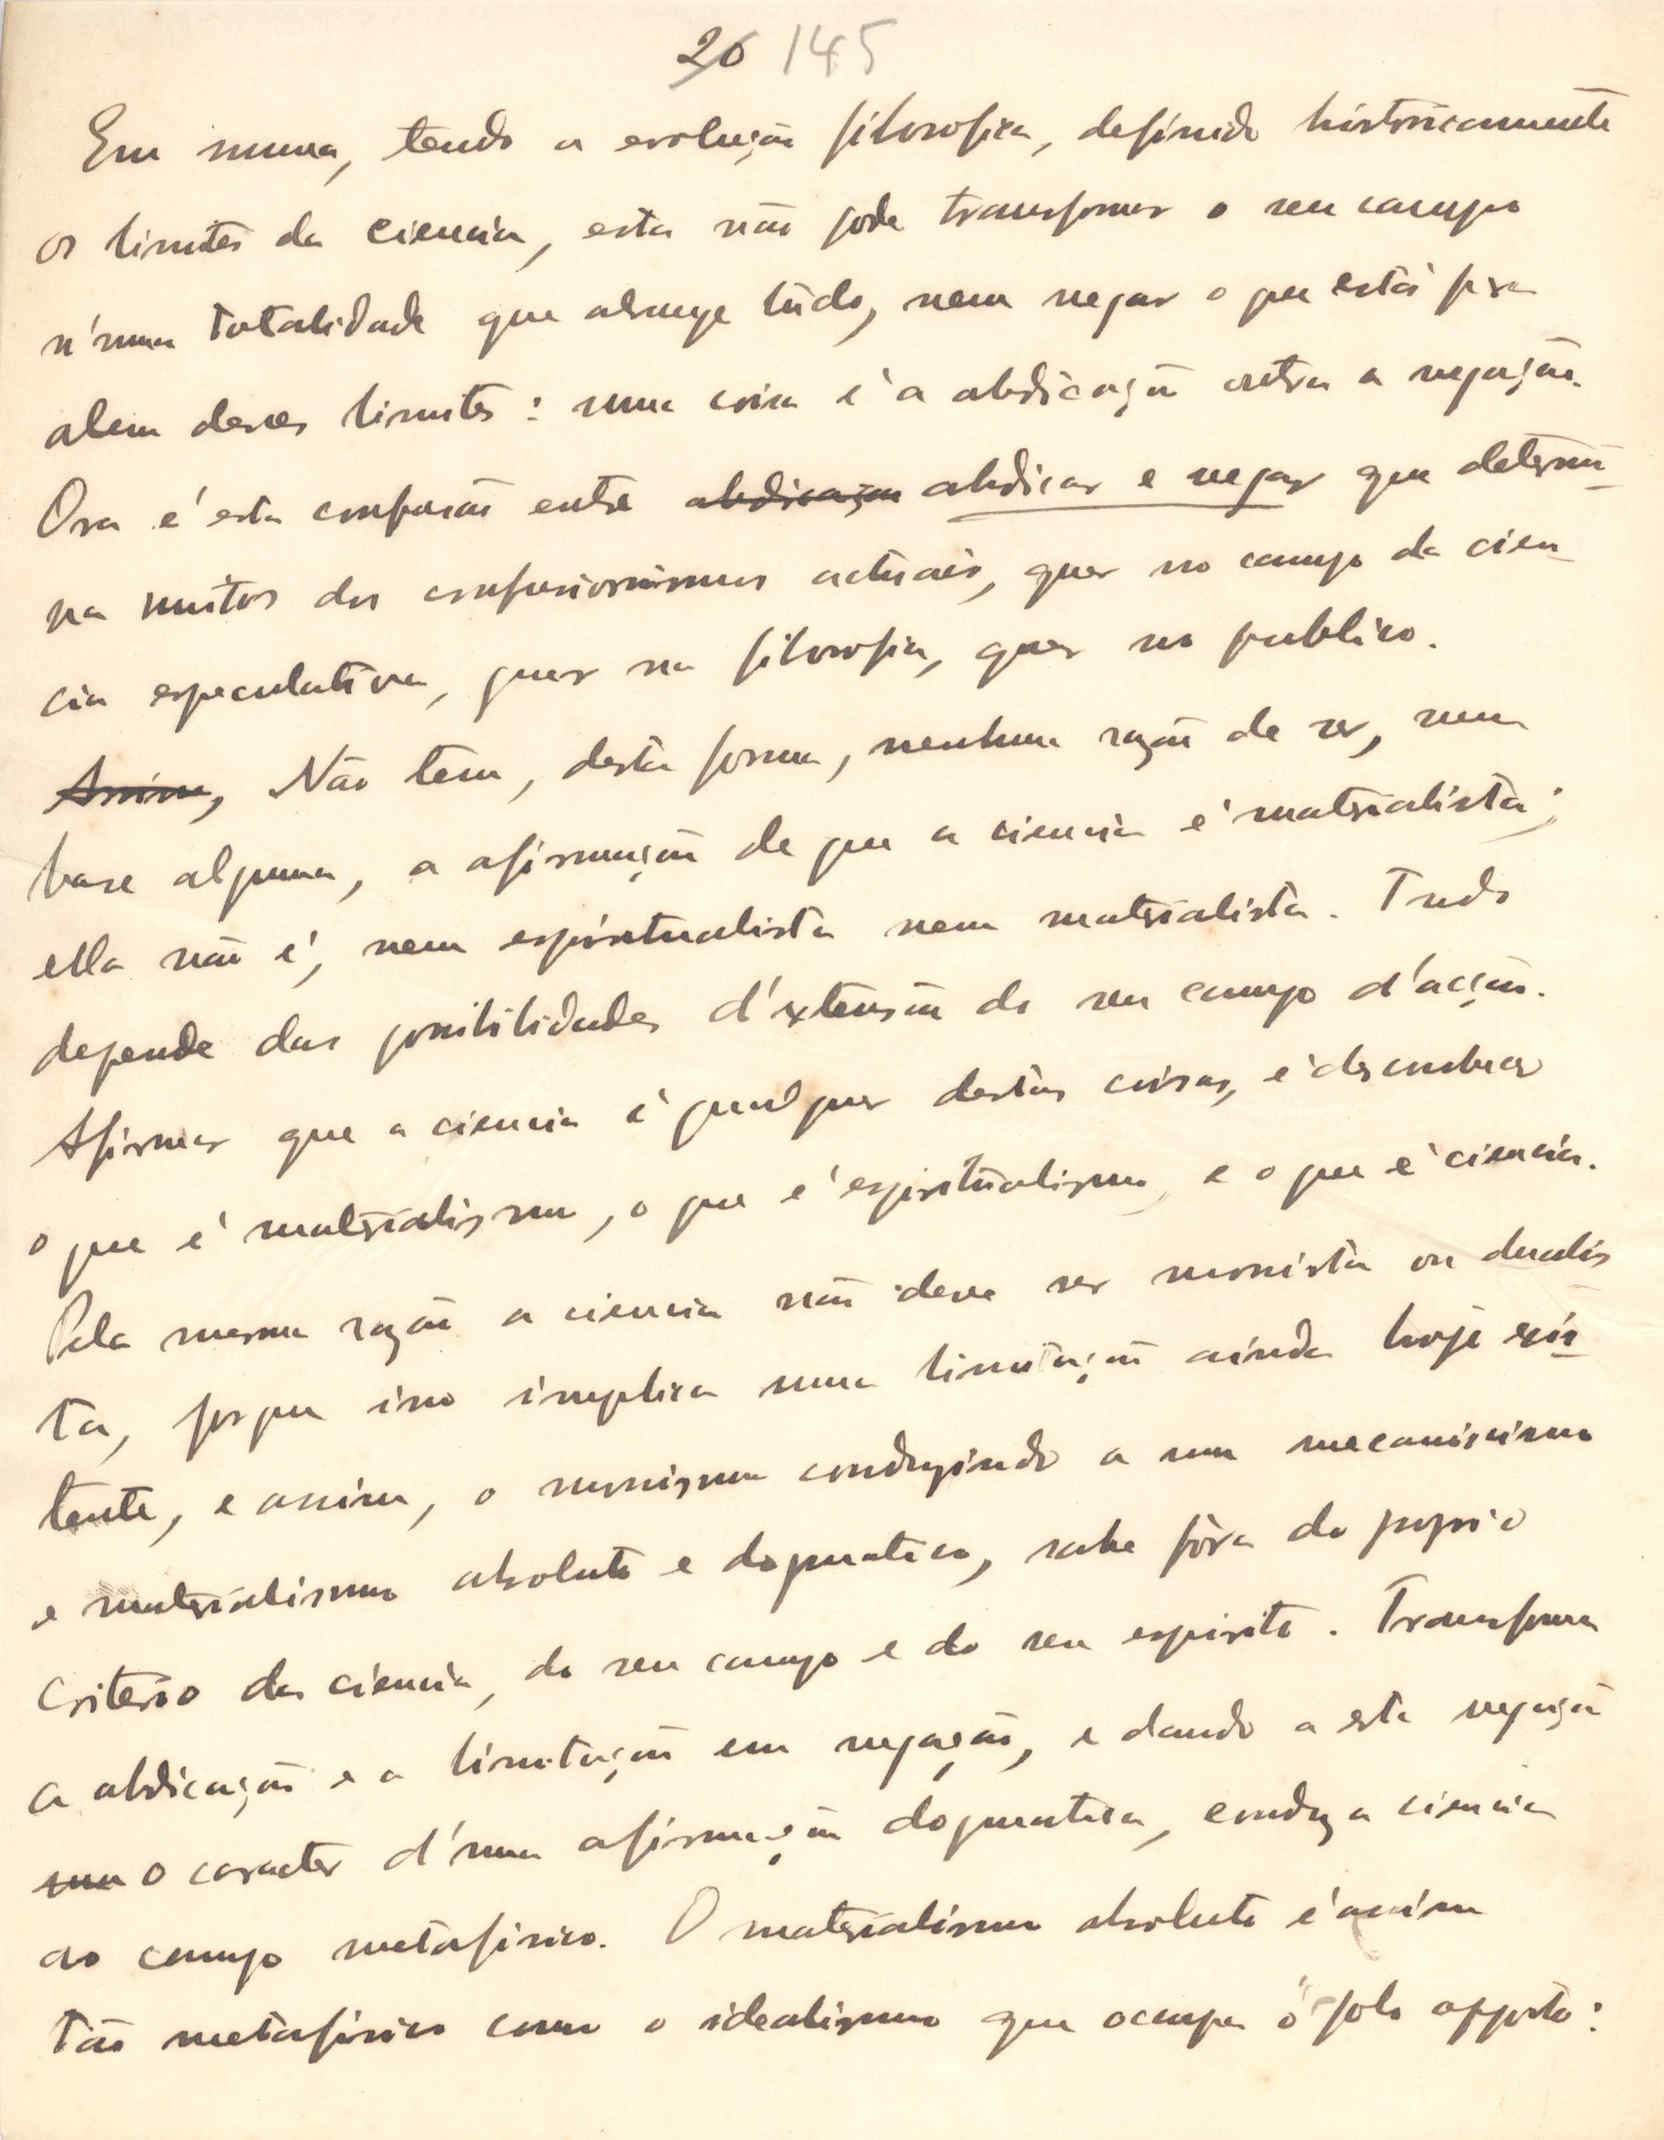 26 145
Em suma, tendo a evolução filosofica, definido historicamente
os limites da ciencia, esta não pode transformar o seu campo
n'uma totalidade que abrange tudo, nem negar o que está para
alem desses limites: uma coisa é a abdicação outra a negação.
Ora é esta confusão entre abdicação abdicar e negar que determi-
na muitos dos confusionismos actuais, quer no campo da cien-
cia especulativa, quer na filosofia, quer no publico.
Assim, Não tem, desta forma, nenhuma razão de ser, nem
base alguma, a afirmação de que a ciencia é materialista;
ella não é, nem espiritualista nem materialista. Tudo
depende das possibilidades d'extensão do seu campo d'acção.
Afirmar que a ciencia é qualquer destas coisas, é desconhecer
o que é materialismo, o que é espiritualismo, e o que é ciencia.
Pela mesma razão a ciencia não deve ser monista ou dualis
ta, porque isso implica uma limitação ainda hoje exis-
tente, e assim, o monismo conduzindo a um mecanicismo
e materialismo absoluto e dogmatico, sahe fóra do proprio
criterio da ciencia, do seu campo e do seu espirito. Transforma
a abdicação e a limitação em negação, e dando a esta negação
uma o caracter d'uma afirmação dogmatica, conduz a ciencia
ao campo metafisico. O materialismo absoluto é assim
tão metafisico como o idealismo que ocupa o polo opposto: